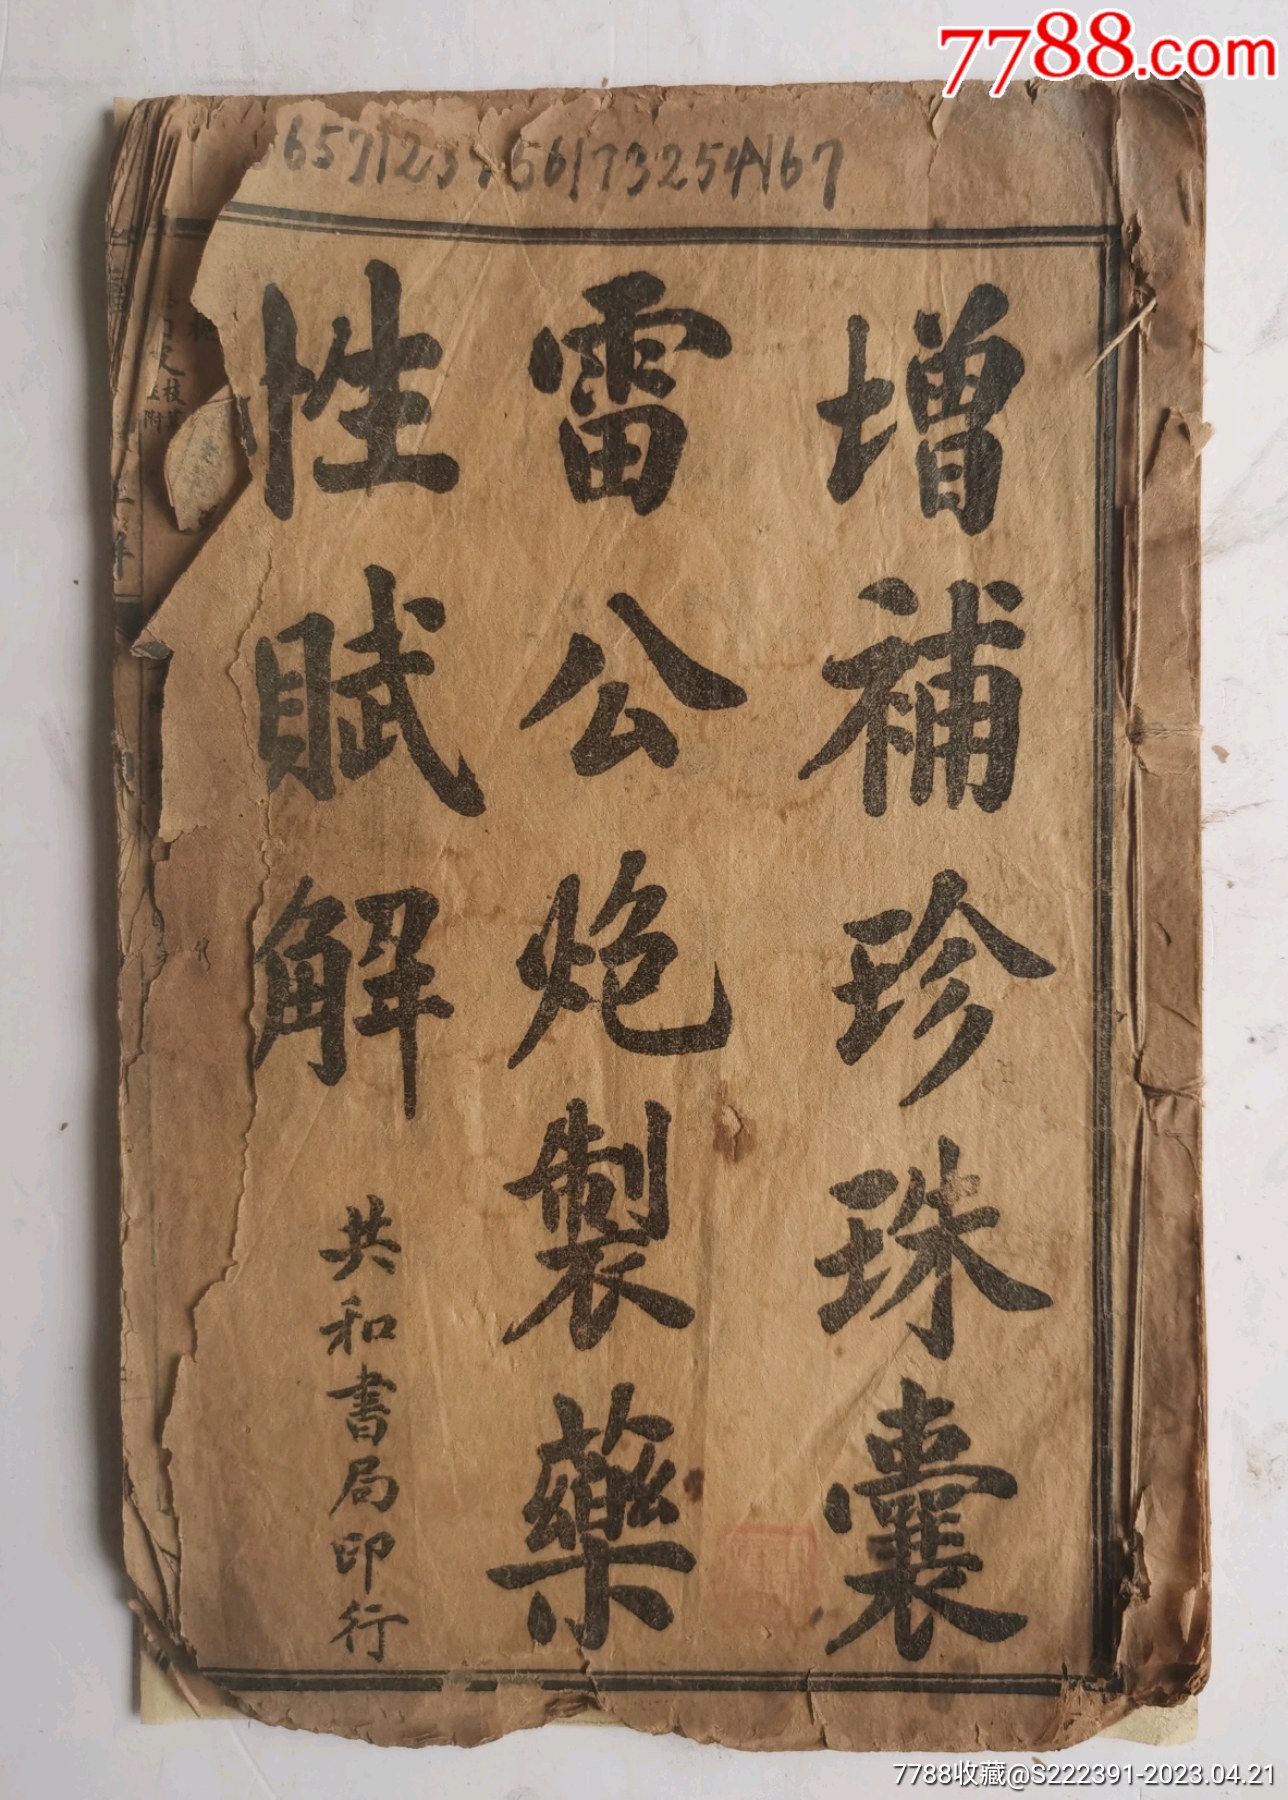 7788.com
657123456173254167
增補珍珠囊
雷公炮製藥
性賦解
共和書局印行
7788收藏@S222391-2023.04.21